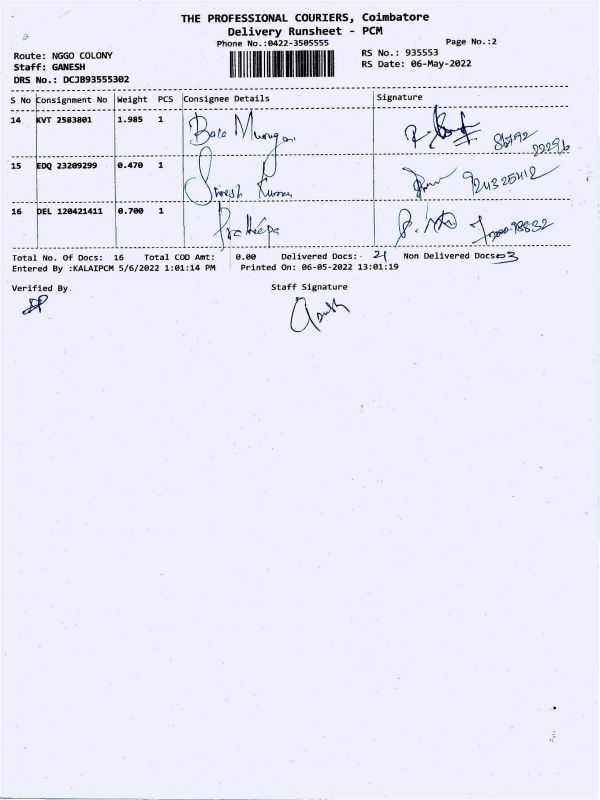 THE PROFESSIONAL COURIERS, Coimbatore
Delivery Runsheet - PCM
Phone No.:0422-3505555
Page No.:2
Route: NGGO COLONY
RS No.: 935553
Staff: GANESH
RS Date: 06-May-2022
DRS No.: DCJB93555302
S No Consignment No Weight PCS Consignee Details Signature
14 KVT 2583801 1.985 1 Bala Murugan
15 EDQ 23209299 0.470 1 Suresh Kumar
16 DEL 120421411 0.700 1 Pratheepa
Total No. Of Docs: 16 Total COD Amt: 0.00 Delivered Docs: 21 Non Delivered Docs 03
Entered By :KALAIPCM 5/6/2022 1:01:14 PM Printed On: 06-05-2022 13:01:19
Verified By. Staff Signature